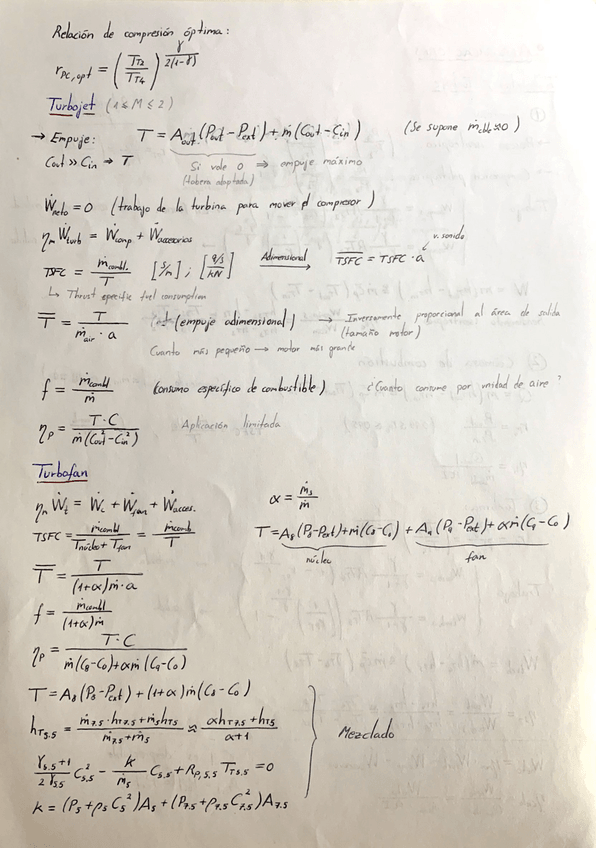 Relación de compresión óptima:
r_PC,opt = (T_T2 / T_T4)^(γ / 2(1-γ))
Turbojet (1 ≤ M ≤ 2)
→ Empuje: T = A_out (P_out - P_ext) + ṁ (C_out - C_in) (Se supone ṁ_comb ≈ 0)
C_out >> C_in → T
Si vale 0 ⇒ empuje máximo
(tobera adaptada)
Ẇ_neto = 0 (trabajo de la turbina para mover el compresor)
η_m Ẇ_turb = Ẇ_comp + Ẇ_accesorios
v. sonido
TSFC = ṁ_combl. / T [g/s / kN] Adimensional → T̅S̅F̅C̅ = TSFC · a
↳ Thrust specific fuel consumption
T̅ = T / (ṁ_air · a) (empuje adimensional) → Inversamente proporcional al área de salida
(tamaño motor)
Cuanto más pequeño → motor más grande
f = ṁ_combl / ṁ (consumo específico de combustible) ¿Cuanto consume por unidad de aire?
η_P = T · C / ṁ (C_out² - C_in²) Aplicación limitada
Turbofan
η_m Ẇ_t = Ẇ_c + Ẇ_fan + Ẇ_acces. α = ṁ_s / ṁ
TSFC = ṁ_combl / (T_núcleo + T_fan) = ṁ_comb / T T = A_8 (P_8 - P_ext) + ṁ (C_8 - C_0) + A_9 (P_9 - P_ext) + αṁ (C_9 - C_0)
núcleo fan
T̅ = T / ((1+α) ṁ · a)
f = ṁ_combl / ((1+α) ṁ)
η_P = T · C / (ṁ (C_8 - C_0) + αṁ (C_9 - C_0))
T = A_8 (P_8 - P_ext) + (1+α) ṁ (C_8 - C_0)
h_T5.5 = (ṁ_7.5 · h_T7.5 + ṁ_5 h_T5) / (ṁ_7.5 + ṁ_5) ≈ (α h_T7.5 + h_T5) / (α+1) Mezclado
(γ_5.5 + 1) / (2 γ_5.5) C²_5.5 - k / ṁ_5 C_5.5 + R_P,5.5 T_T5.5 = 0
k = (P_5 + ρ_5 C_5²) A_5 + (P_7.5 + ρ_7.5 C²_7.5) A_7.5